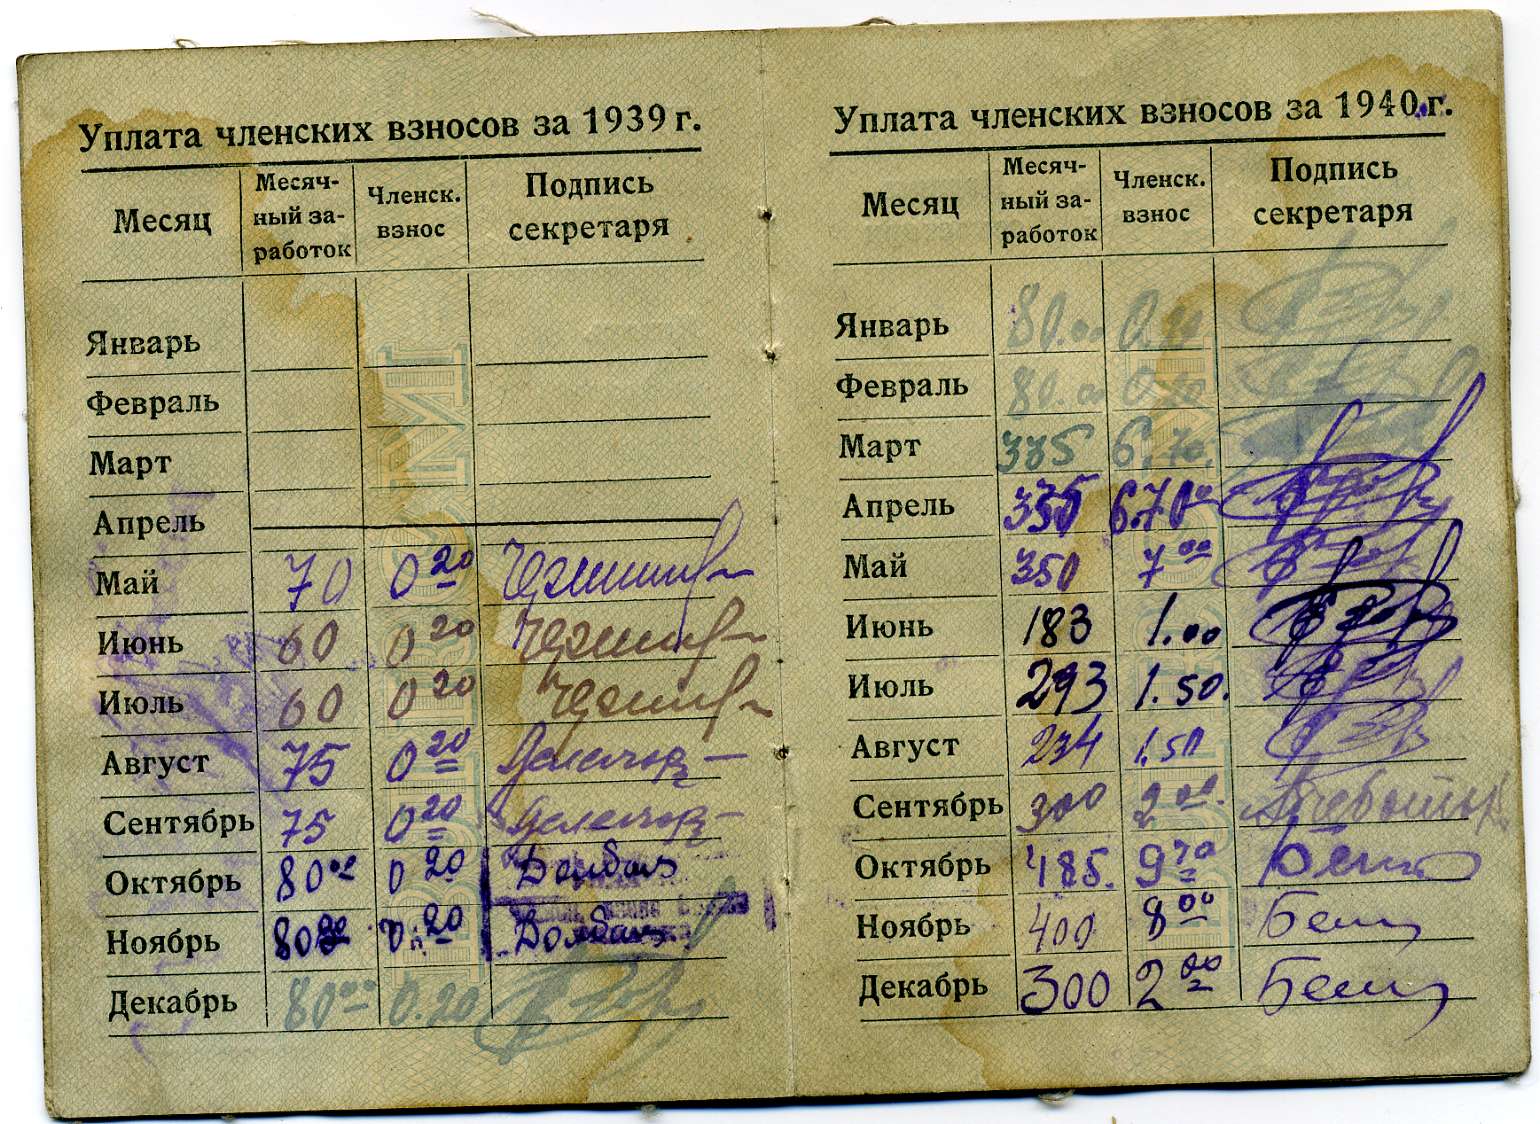 Уплата членских взносов за 1939 г.
Месяц
Месяч-
ный за-
работок
Членск.
взнос
Подпись
секретаря
Январь
Февраль
Март
Апрель
Май 70 0 20
Июнь 60 0 20
Июль 60 0 20
Август 75 0 20
Сентябрь 75 0 20
Октябрь 80 00 0 20
Ноябрь 80 0 20
Декабрь 80 00 0.20
Уплата членских взносов за 1940 г.
Месяц
Месяч-
ный за-
работок
Членск.
взнос
Подпись
секретаря
Январь 80.00 0.20
Февраль 80.00 0.20
Март 335 6.70.
Апрель 6.70
Май 350 7 00
Июнь 183 1.00
Июль 293 1.50.
Август 234 1.50
Сентябрь 300 2 00.
Октябрь 485. 9 70
Ноябрь 400 8 00
Декабрь 300 2 00